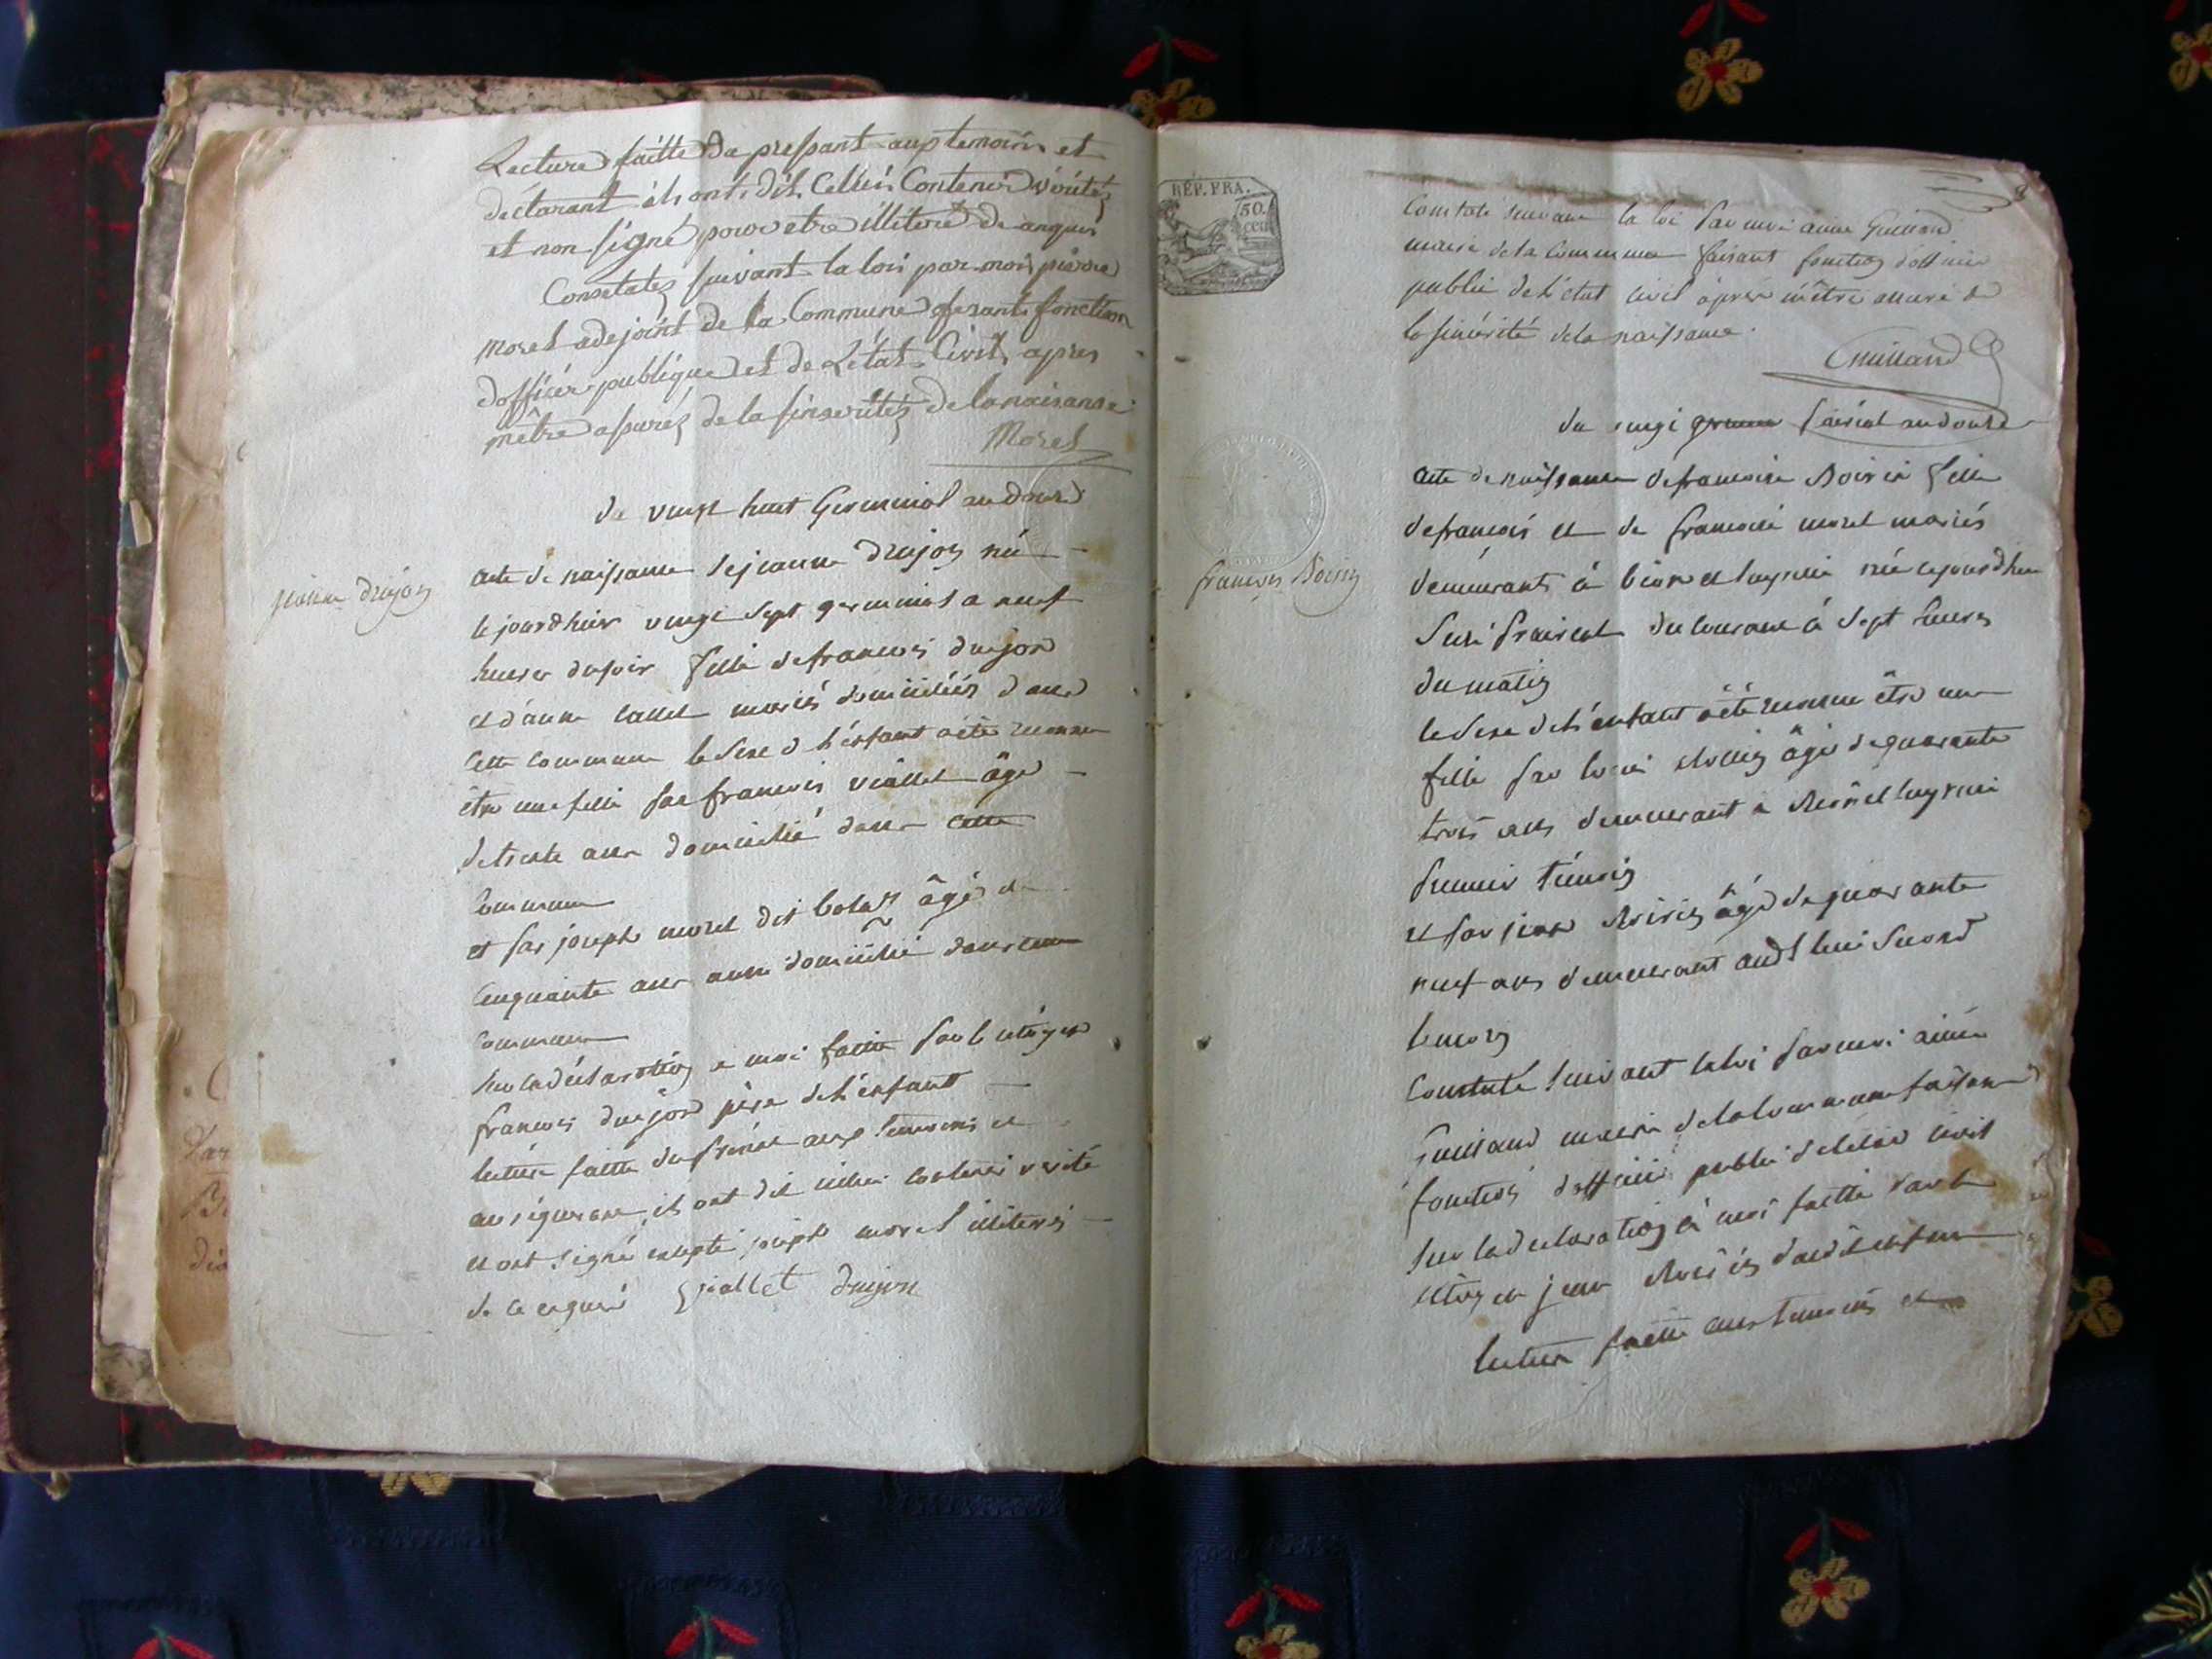 Lecture faitte du pressant aux temoins et
déclarant ils onts dit Celluis Contenir véritéz
et non signé pour etre illiteré de anquis
Constatéz suivant la lois par moi pierre
Morel adejoint de la Commune fesant fonction
dofficier publique et de L'état Civil, apres
mêtre assuréz de la sinseritéz de la naisance
Morel
du vingt huit Germinal an douze
jeanne drujon
acte de naissance de jeanne drujon née
le jourdhier vingt sept germinal a neuf
heures du soir fille de francois drujon
et d'anne mariés domiciliés dans
cette commune le sexe d l'enfant a été reconnu
être une fille par francois viallet âgé
de trente ans domicilié dans cette
commune
et par joseph morel dit âgé de
cinquante ans aussi domicilié dans cette
commune
sur la déclaration a moi faitte par le citoyen
francois drujon père de l'enfant
lecture faitte du présent aux temoins et
au réquerant, ils ont dit icelui contenir vérité
et ont signé excepté joseph morel illiteré
de ce enquis Viallet drujon
REP. FRA.
50.
cen
8
Constaté suivant la loi par moi aimé Guilland
maire de la commune faisant fonction d'officier
public de l'état civil après m'être assuré de
la sincérité de la naissance.
Guilland
du vingt prairial an douze
francois Boirin
acte de naissance de francoise fille
de francois et de francoise morel mariés
demeurants à née cejourdhui
prairial du courant à sept heures
du matin
le sexe de l'enfant a été reconnu être une
fille par âgé de quarante
trois ans demeurant a
premier témoin
et par jean âgé de quarante
neuf ans demeurant audt lieu second
temoin
Constaté suivant la loi par moi aimé
Guilland maire de la commune faisant
fonction d'officier public de l'état civil
sur la declaration à moi faitte par le
citoyen jean dudit enfant
lecture faitte aux temoins et